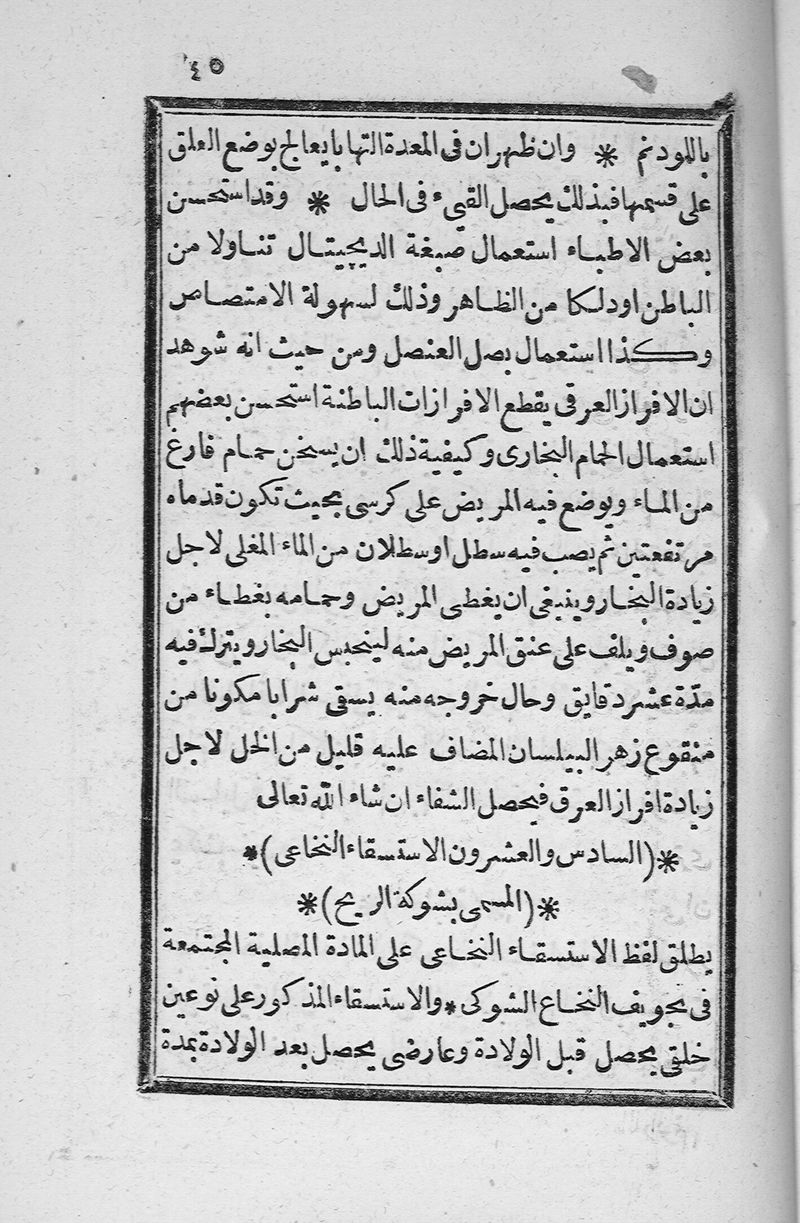 ٤٥
باللودنم * وان ظهران فى المعدة التهابا يعالج بوضع العلق
على قسمها فبذلك يحصل القىء فى الحال * وقد استحسن
بعض الاطباء استعمال صبغة الديچيتال تناولا من
الباطن اودلكا من الظاهر وذلك لسهولة الامتصاص
وكذا استعمال بصل العنصل ومن حيث انه شوهد
ان الافراز العرقى يقطع الافرازات الباطنة استحسن بعضهم
استعمال الحمام البخارى وكيفية ذلك ان يسخن حمام فارغ
من الماء ويوضع فيه المريض على كرسى بحيث تكون قدماه
مرتفعتين ثم يصب فيه سطل اوسطلان من الماء المغلى لاجل
زيادة البخار وينبغى ان يغطى المريض وحمامه بغطاء من
صوف ويلف على عنق المريض منه لينحبس البخار ويترك فيه
مدّة عشر دقايق وحال خروجه منه يسقى شرابا مكونا من
منقوع زهر البيلسان المضاف عليه قليل من الخل لاجل
زيادة افراز العرق فيحصل الشفاء ان شاء الله تعالى
*(السادس والعشرون الاستسقاء النخاعى)*
*(المسمى بشوكة الريح)*
يطلق لفظ الاستسقاء النخاعى على المادة المصلية المجتمعة
فى تجويف النخاع الشوكى * والاستسقاء المذكور على نوعين
خلقى يحصل قبل الولادة وعارضى يحصل بعد الولادة بمدة